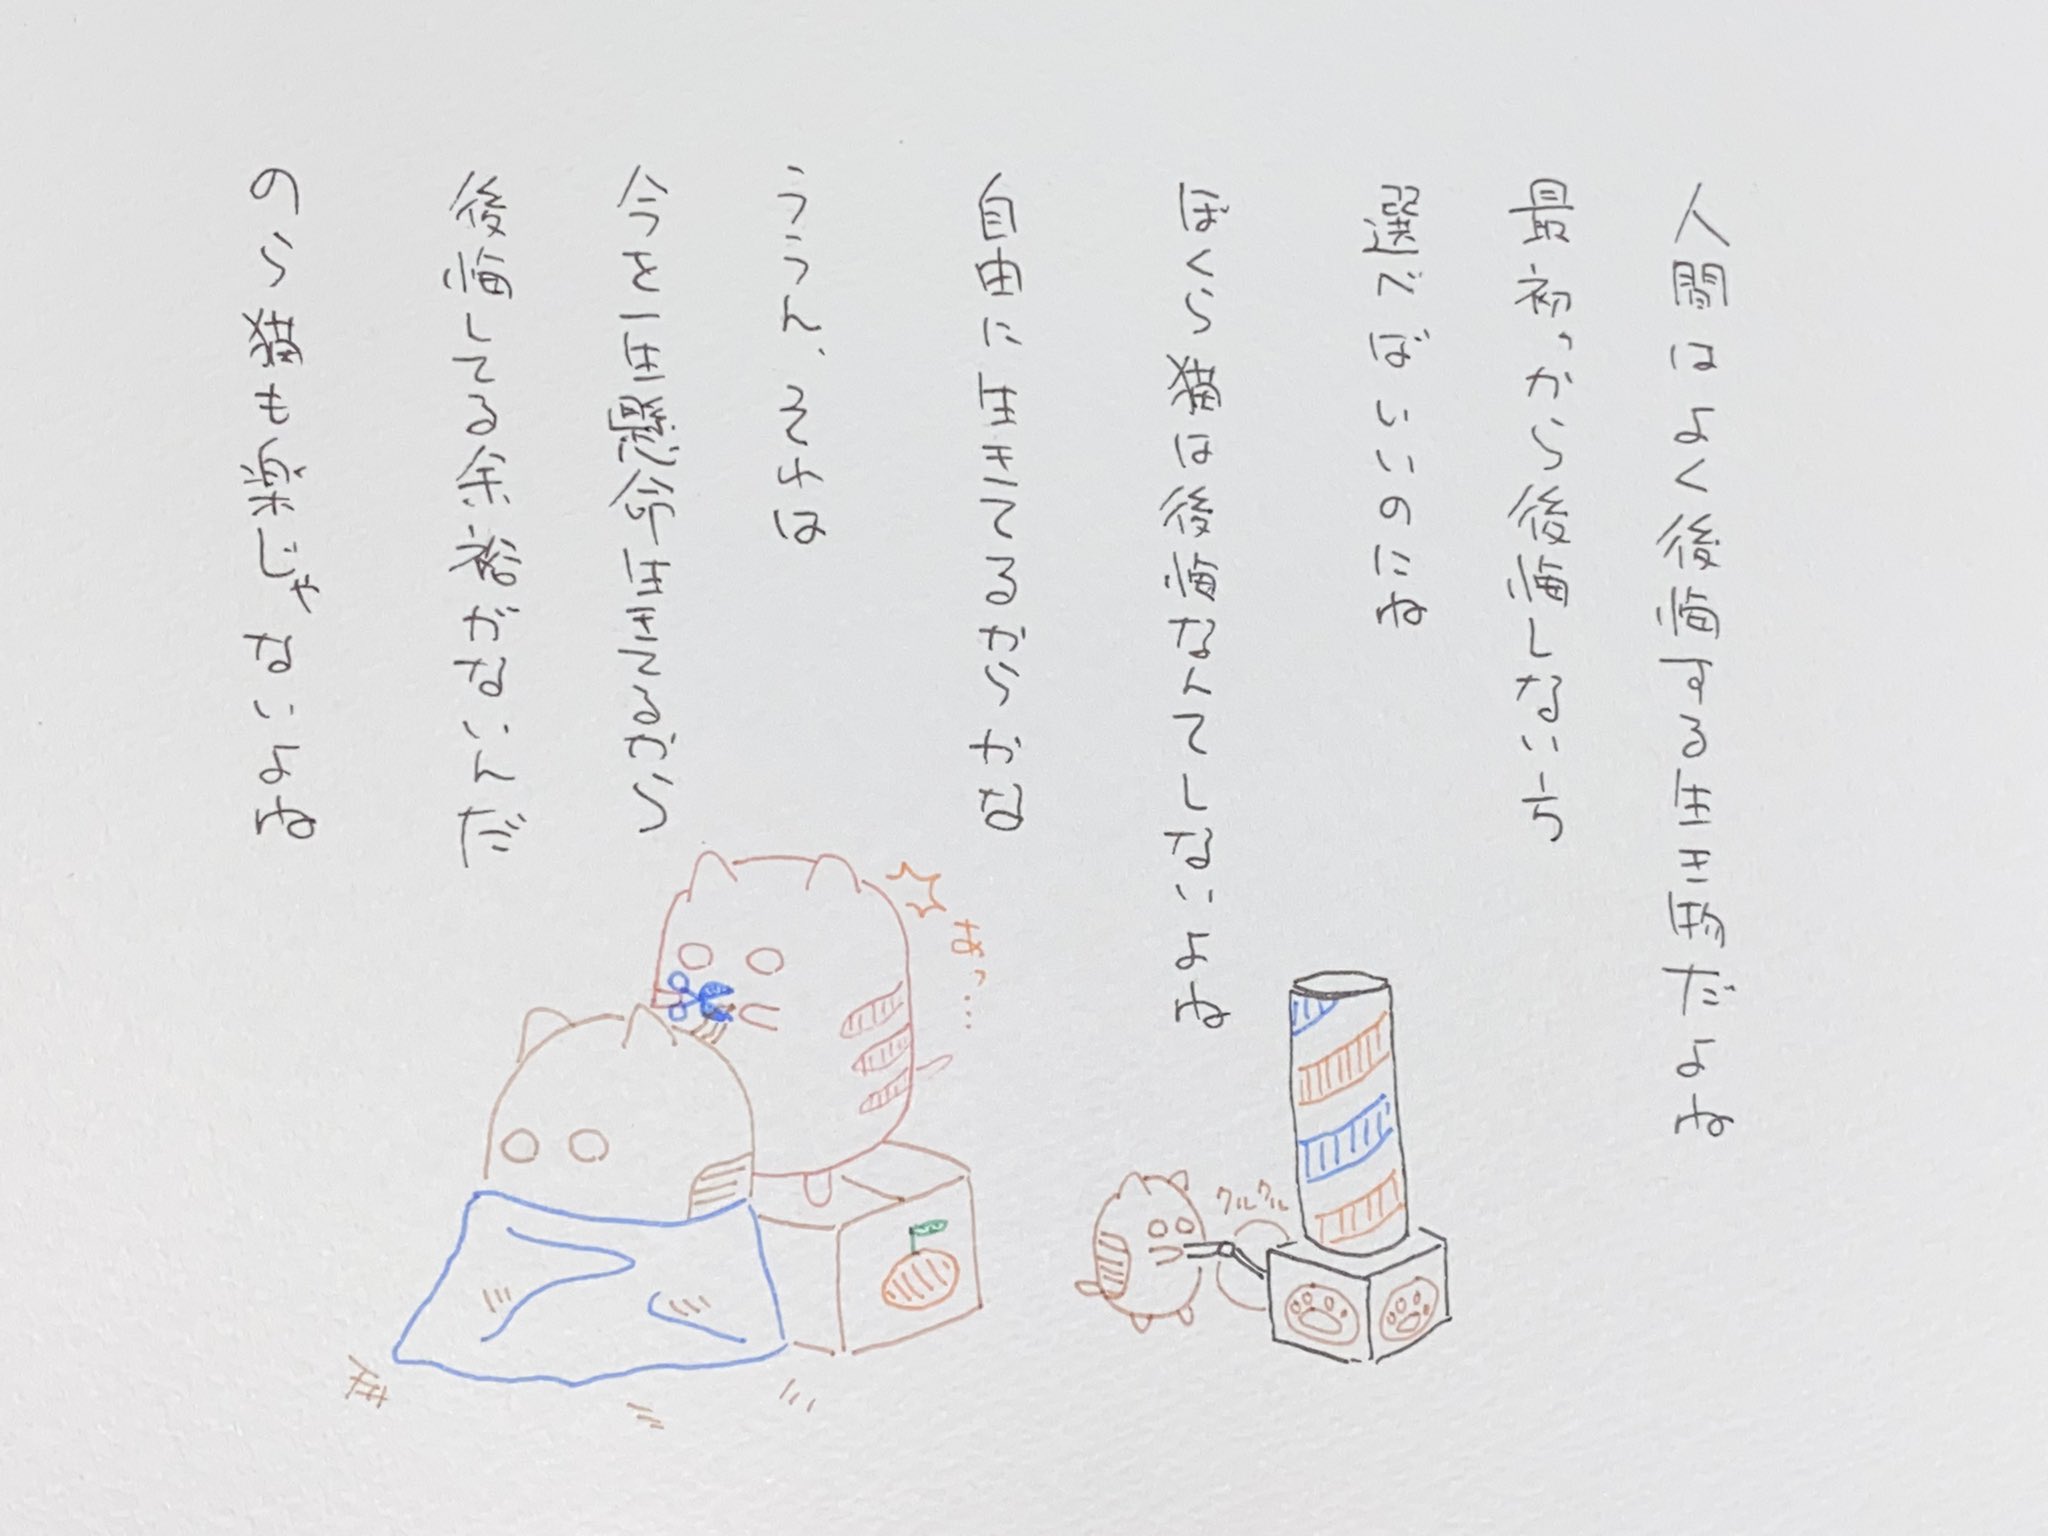 人間はよく後悔する生き物だよね
最初っから後悔しない方
選べばいいのにね
ぼくら猫は後悔なんてしないよね
自由に生きてるからかな
ううん、それは
今を一生懸命生きてるから
後悔してる余裕がないんだ
のら猫も楽じゃないよね
あっ…
クルクル